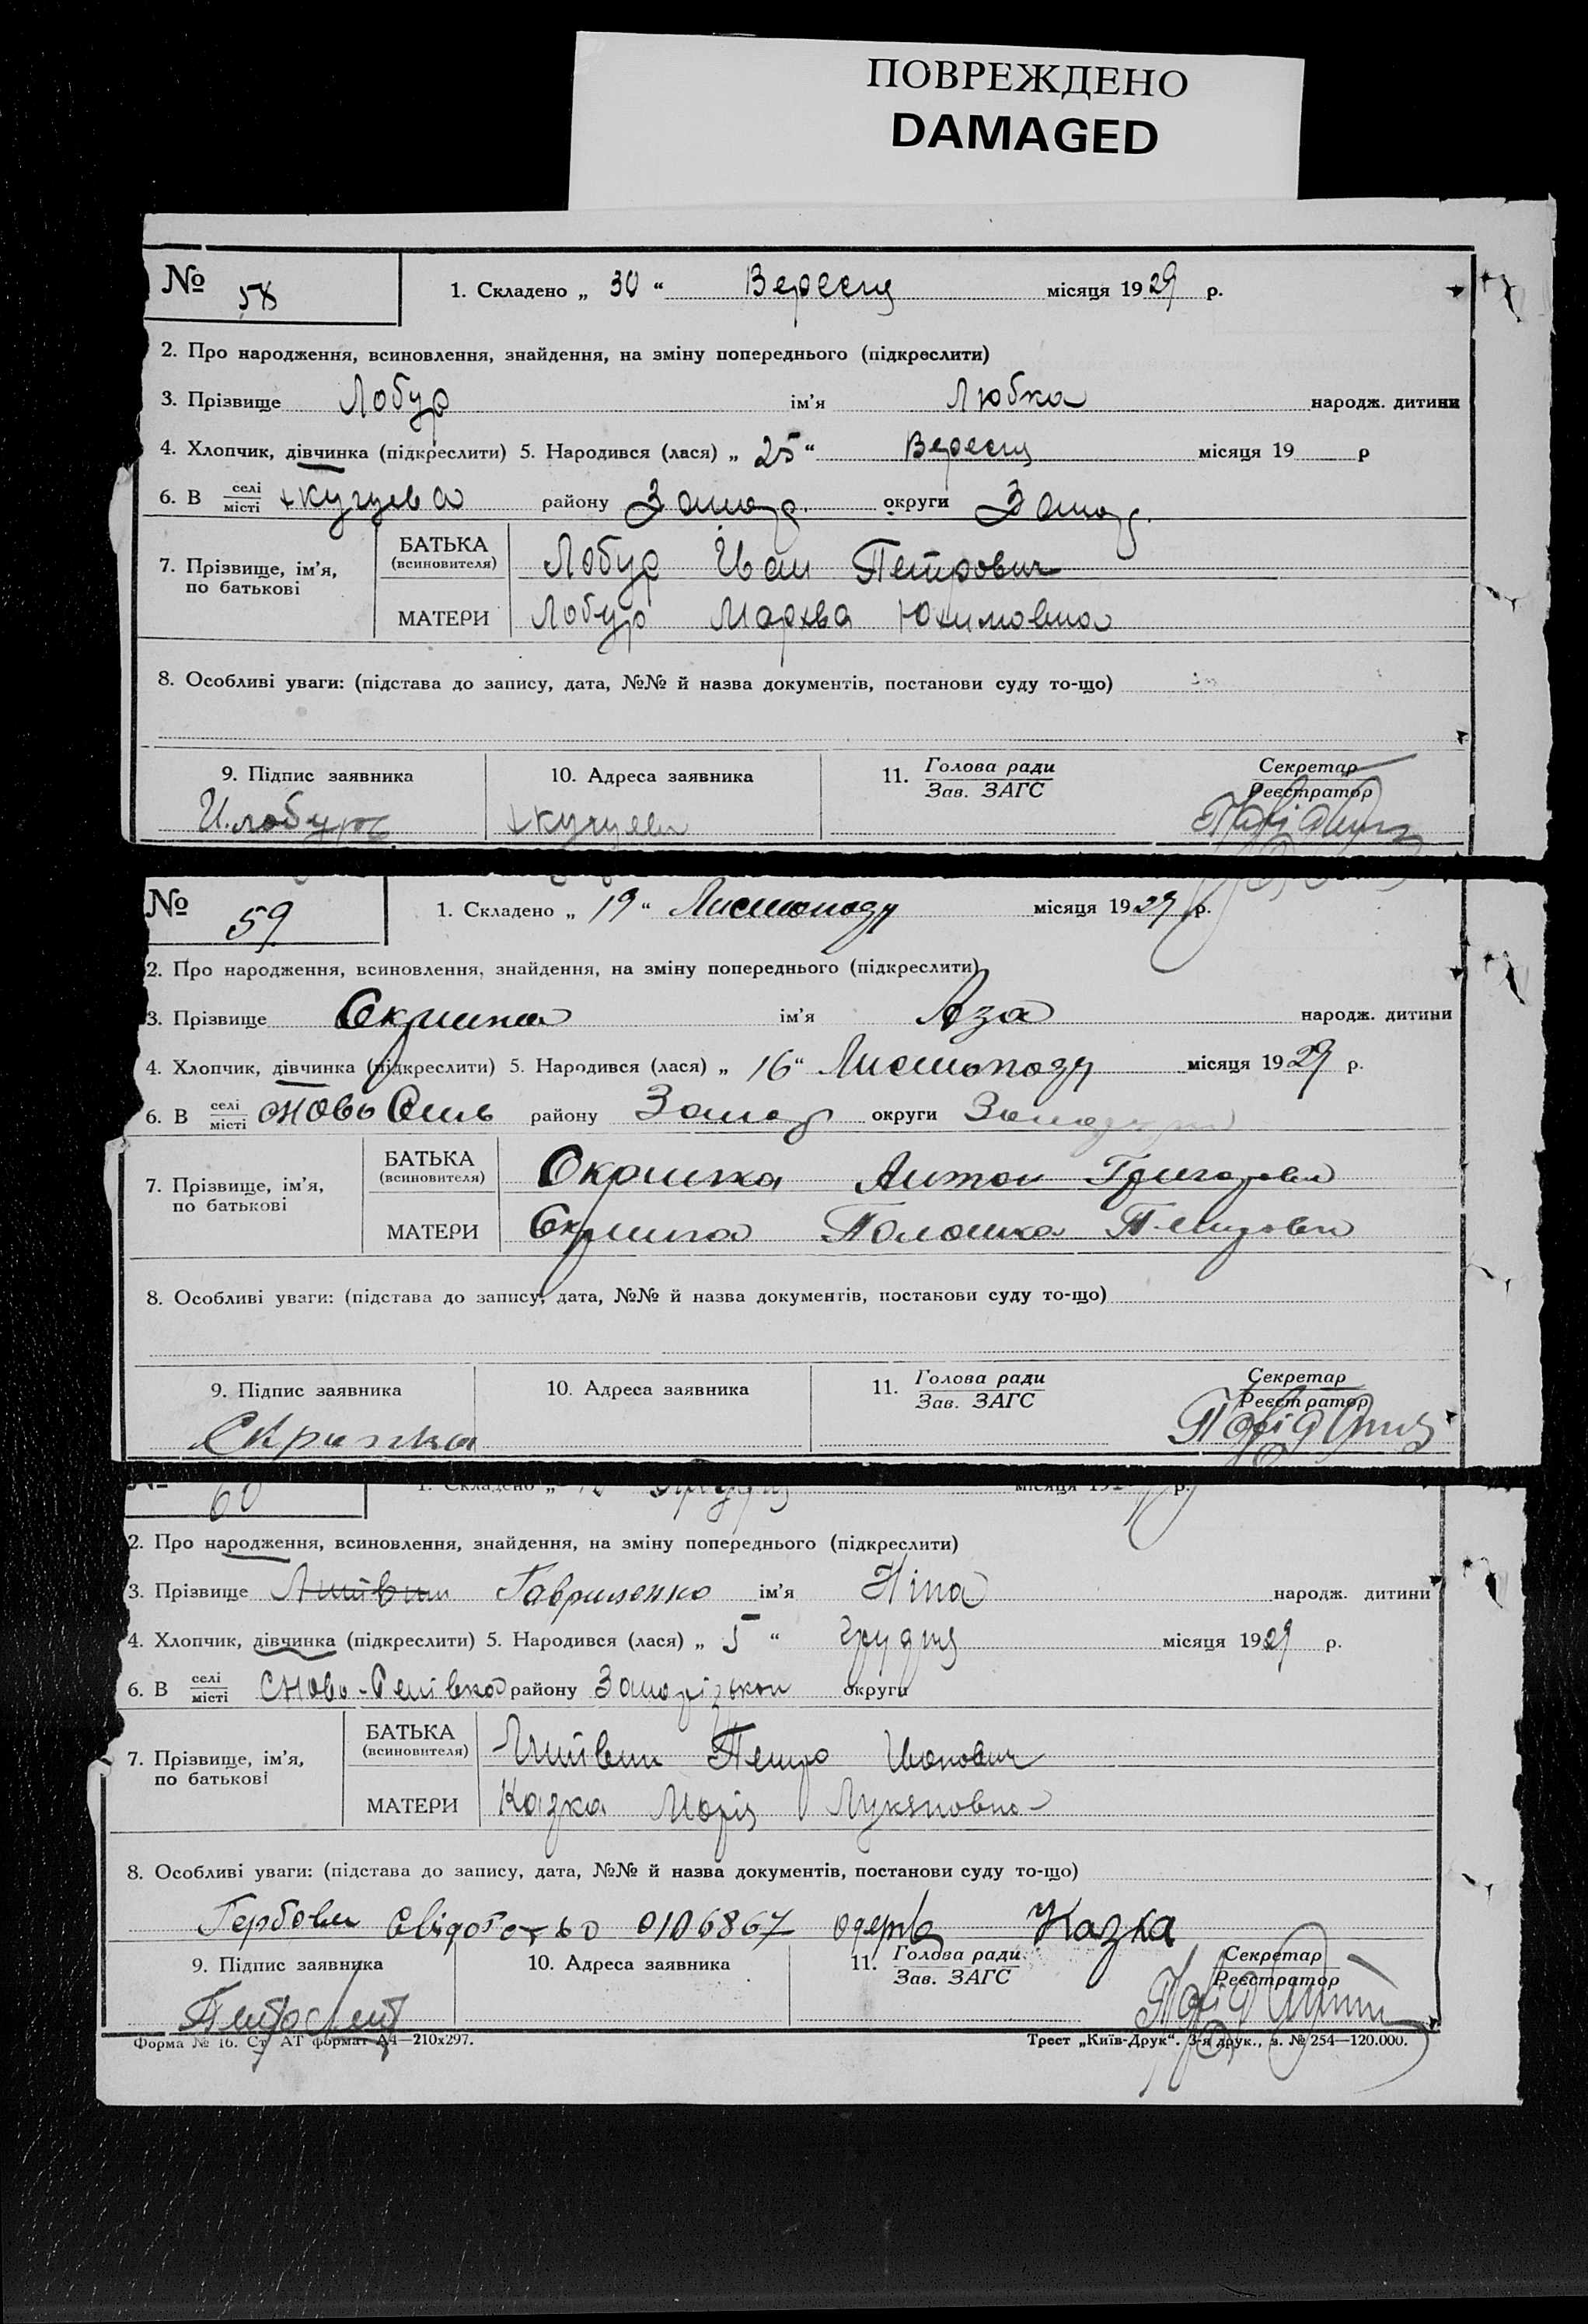 ПОВРЕЖДЕНО
DAMAGED
№ 58 1. Складено „ 30 “ Вересня місяця 1929 р.
2. Про народження, всиновлення, знайдення, на зміну попереднього (підкреслити)
3. Прізвище Лобур ім'я Любка народж. дитини
4. Хлопчик, дівчинка (підкреслити) 5. Народився (лася) „ 25 “ Вересня місяця 19 р
6. В селі місті району Запор. округи Запор.
7. Прізвище, ім'я, по батькові
БАТЬКА (всиновителя) Лобур Іван Петрович
МАТЕРИ Лобур Мархва Юхимовна
8. Особливі уваги: (підстава до запису, дата, №№ й назва документів, постанови суду то-що)
9. Підпис заявника 10. Адреса заявника 11. Голова ради Зав. ЗАГС Секретар Реєстратор
И. лобуръ
№ 59 1. Складено „ 19 “ Листопаду місяця 1929 р.
2. Про народження, всиновлення, знайдення, на зміну попереднього (підкреслити)
3. Прізвище Скрипка ім'я Аза народж. дитини
4. Хлопчик, дівчинка (підкреслити) 5. Народився (лася) „ 16 “ Листопаду місяця 1929 р.
6. В селі місті району Запор округи
7. Прізвище, ім'я, по батькові
БАТЬКА (всиновителя) Скрипка Антон Григорович
МАТЕРИ Скрипка Палашка
8. Особливі уваги: (підстава до запису, дата, №№ й назва документів, постанови суду то-що)
9. Підпис заявника 10. Адреса заявника 11. Голова ради Зав. ЗАГС Секретар Реєстратор
Скрипка
№ 60 1. Складено „ Грудня місяця 192 р.
2. Про народження, всиновлення, знайдення, на зміну попереднього (підкреслити)
3. Прізвище Литвин Гавриленко ім'я Ніна народж. дитини
4. Хлопчик, дівчинка (підкреслити) 5. Народився (лася) „ 5 “ Грудня місяця 1929 р.
6. В селі місті району Запорізькои округи
7. Прізвище, ім'я, по батькові
БАТЬКА (всиновителя) Литвин Петро Иванович
МАТЕРИ Казка Марія Лукяновна
8. Особливі уваги: (підстава до запису, дата, №№ й назва документів, постанови суду то-що)
Гербове свідотство 0106867 одерж Казка
9. Підпис заявника 10. Адреса заявника 11. Голова ради Зав. ЗАГС Секретар Реєстратор
Форма № 16. Ст АТ формат А4—210х297. Трест „Київ-Друк“. 3-я друк., з. № 254—120.000.